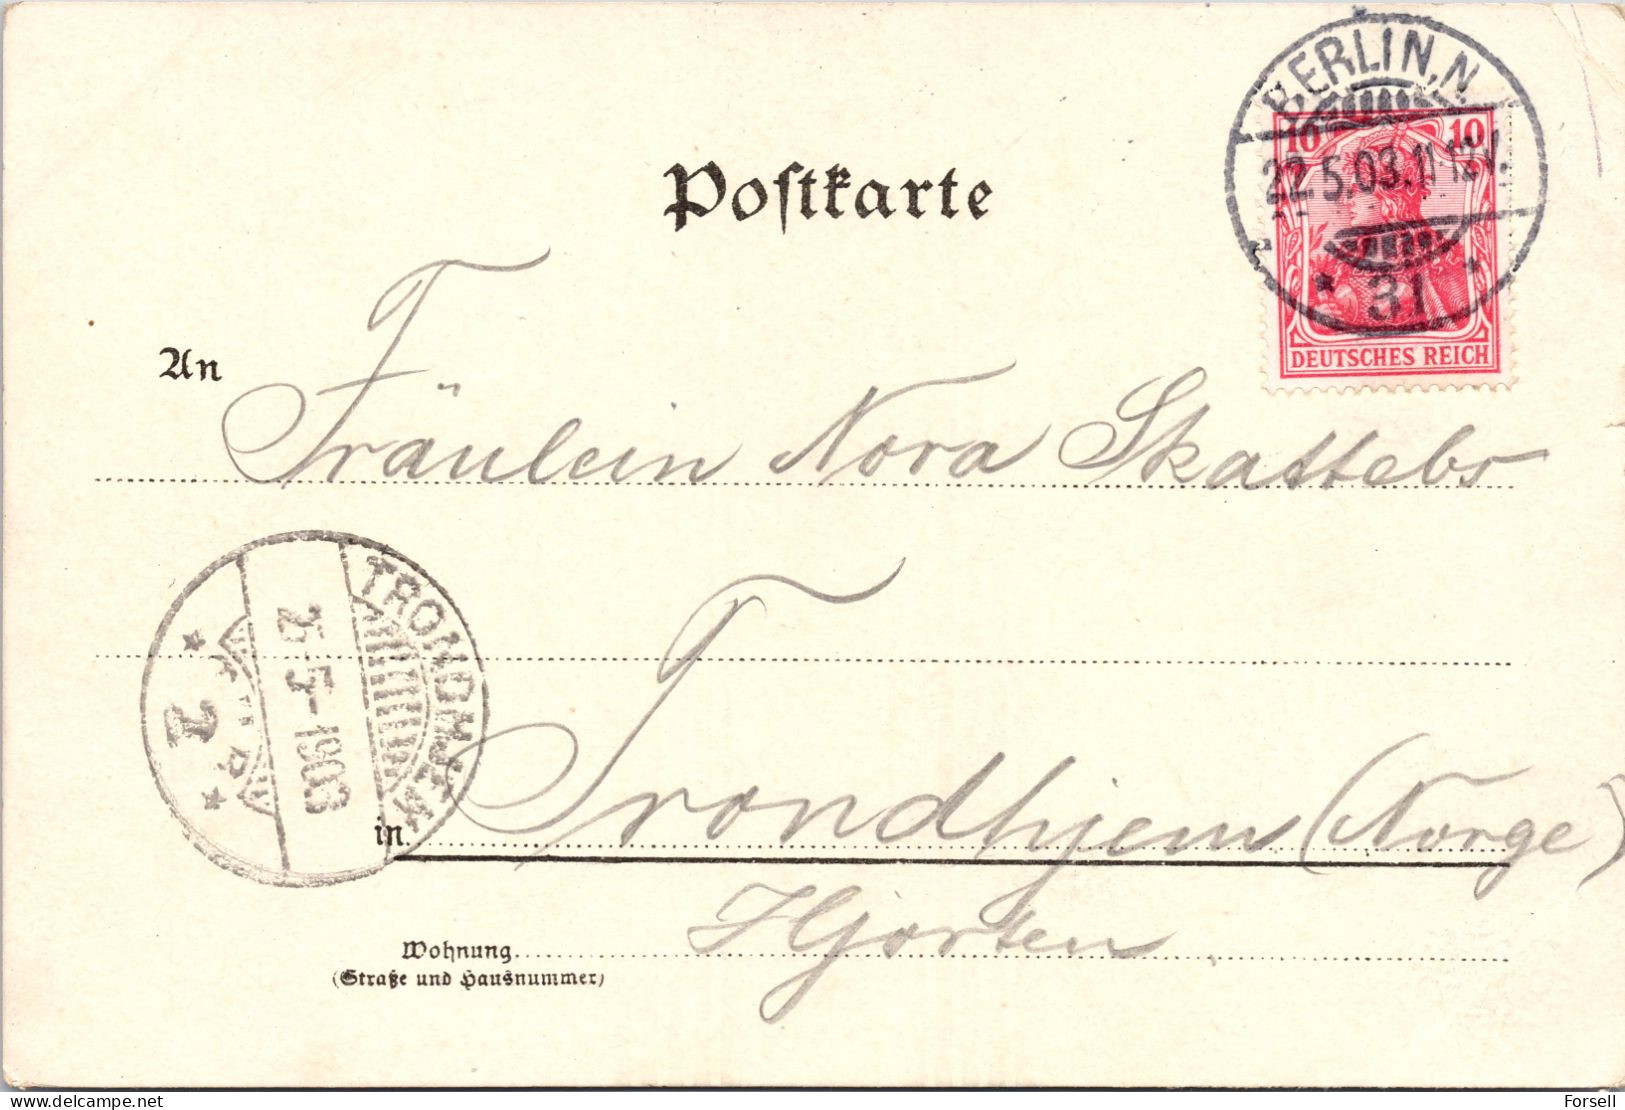 BERLIN, N.
22.5.03.11-12V.
* 31 *
10 10
DEUTSCHES REICH
Postkarte
An Fräulein Nora Skattebs
TRONDHJEM
25-5-1903
2
in Trondhjem (Norge)
Wohnung Hjorten
(Straße und Hausnummer)
delcampe.net
Forsell